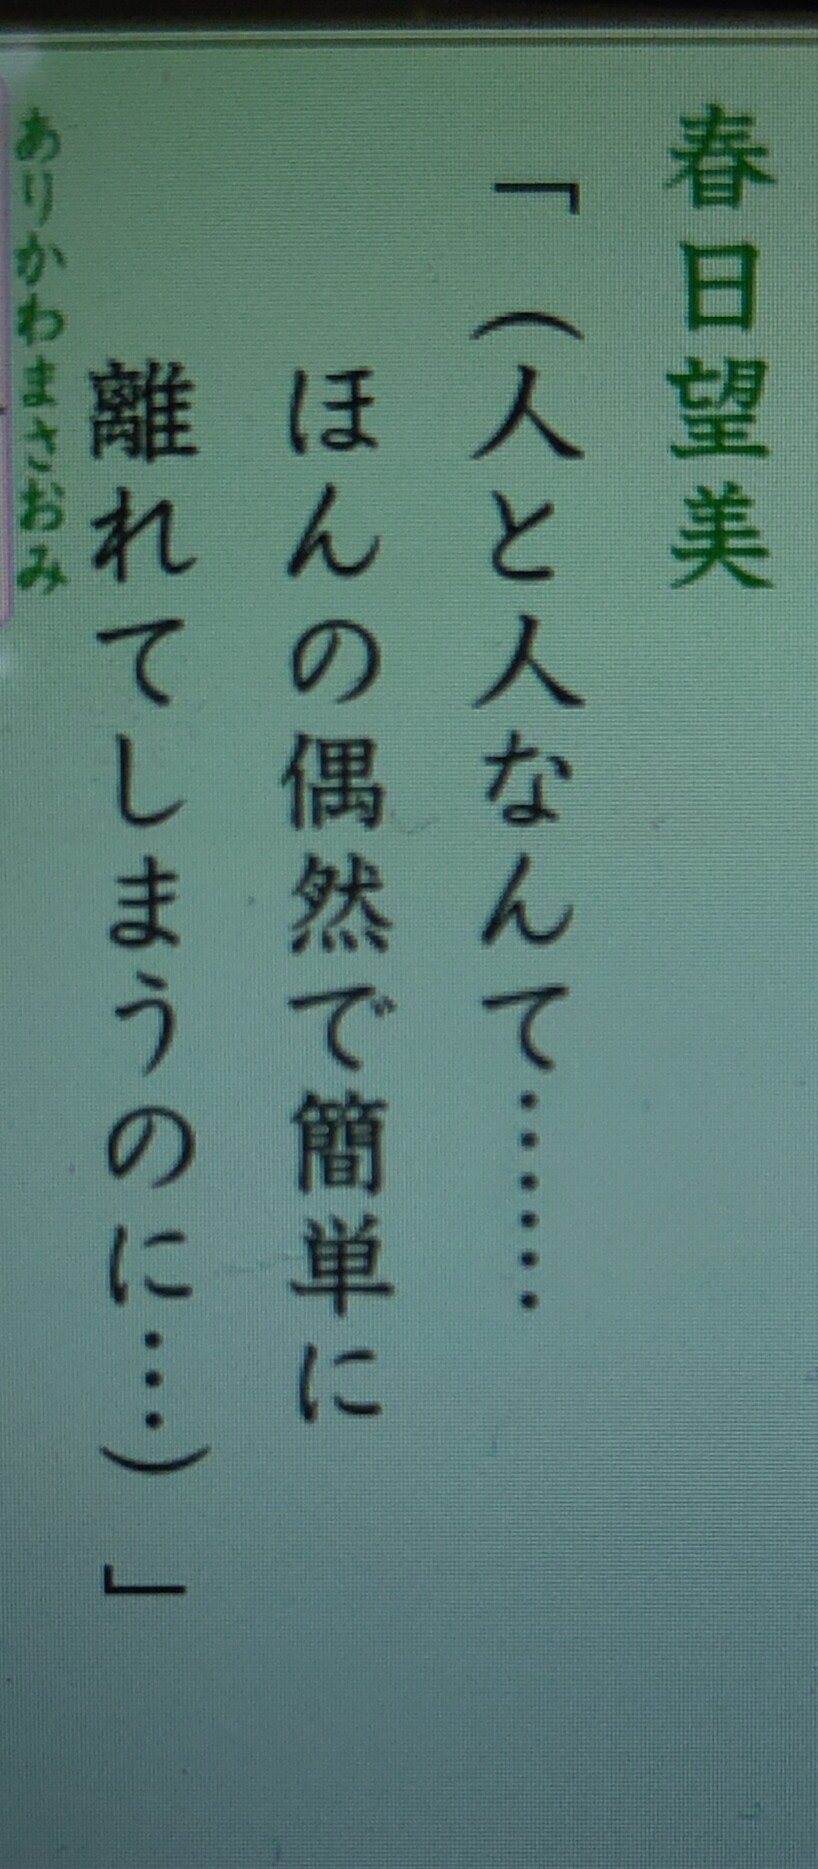 春日望美
「（人と人なんて……
ほんの偶然で簡単に
離れてしまうのに…）」
ありかわまさおみ